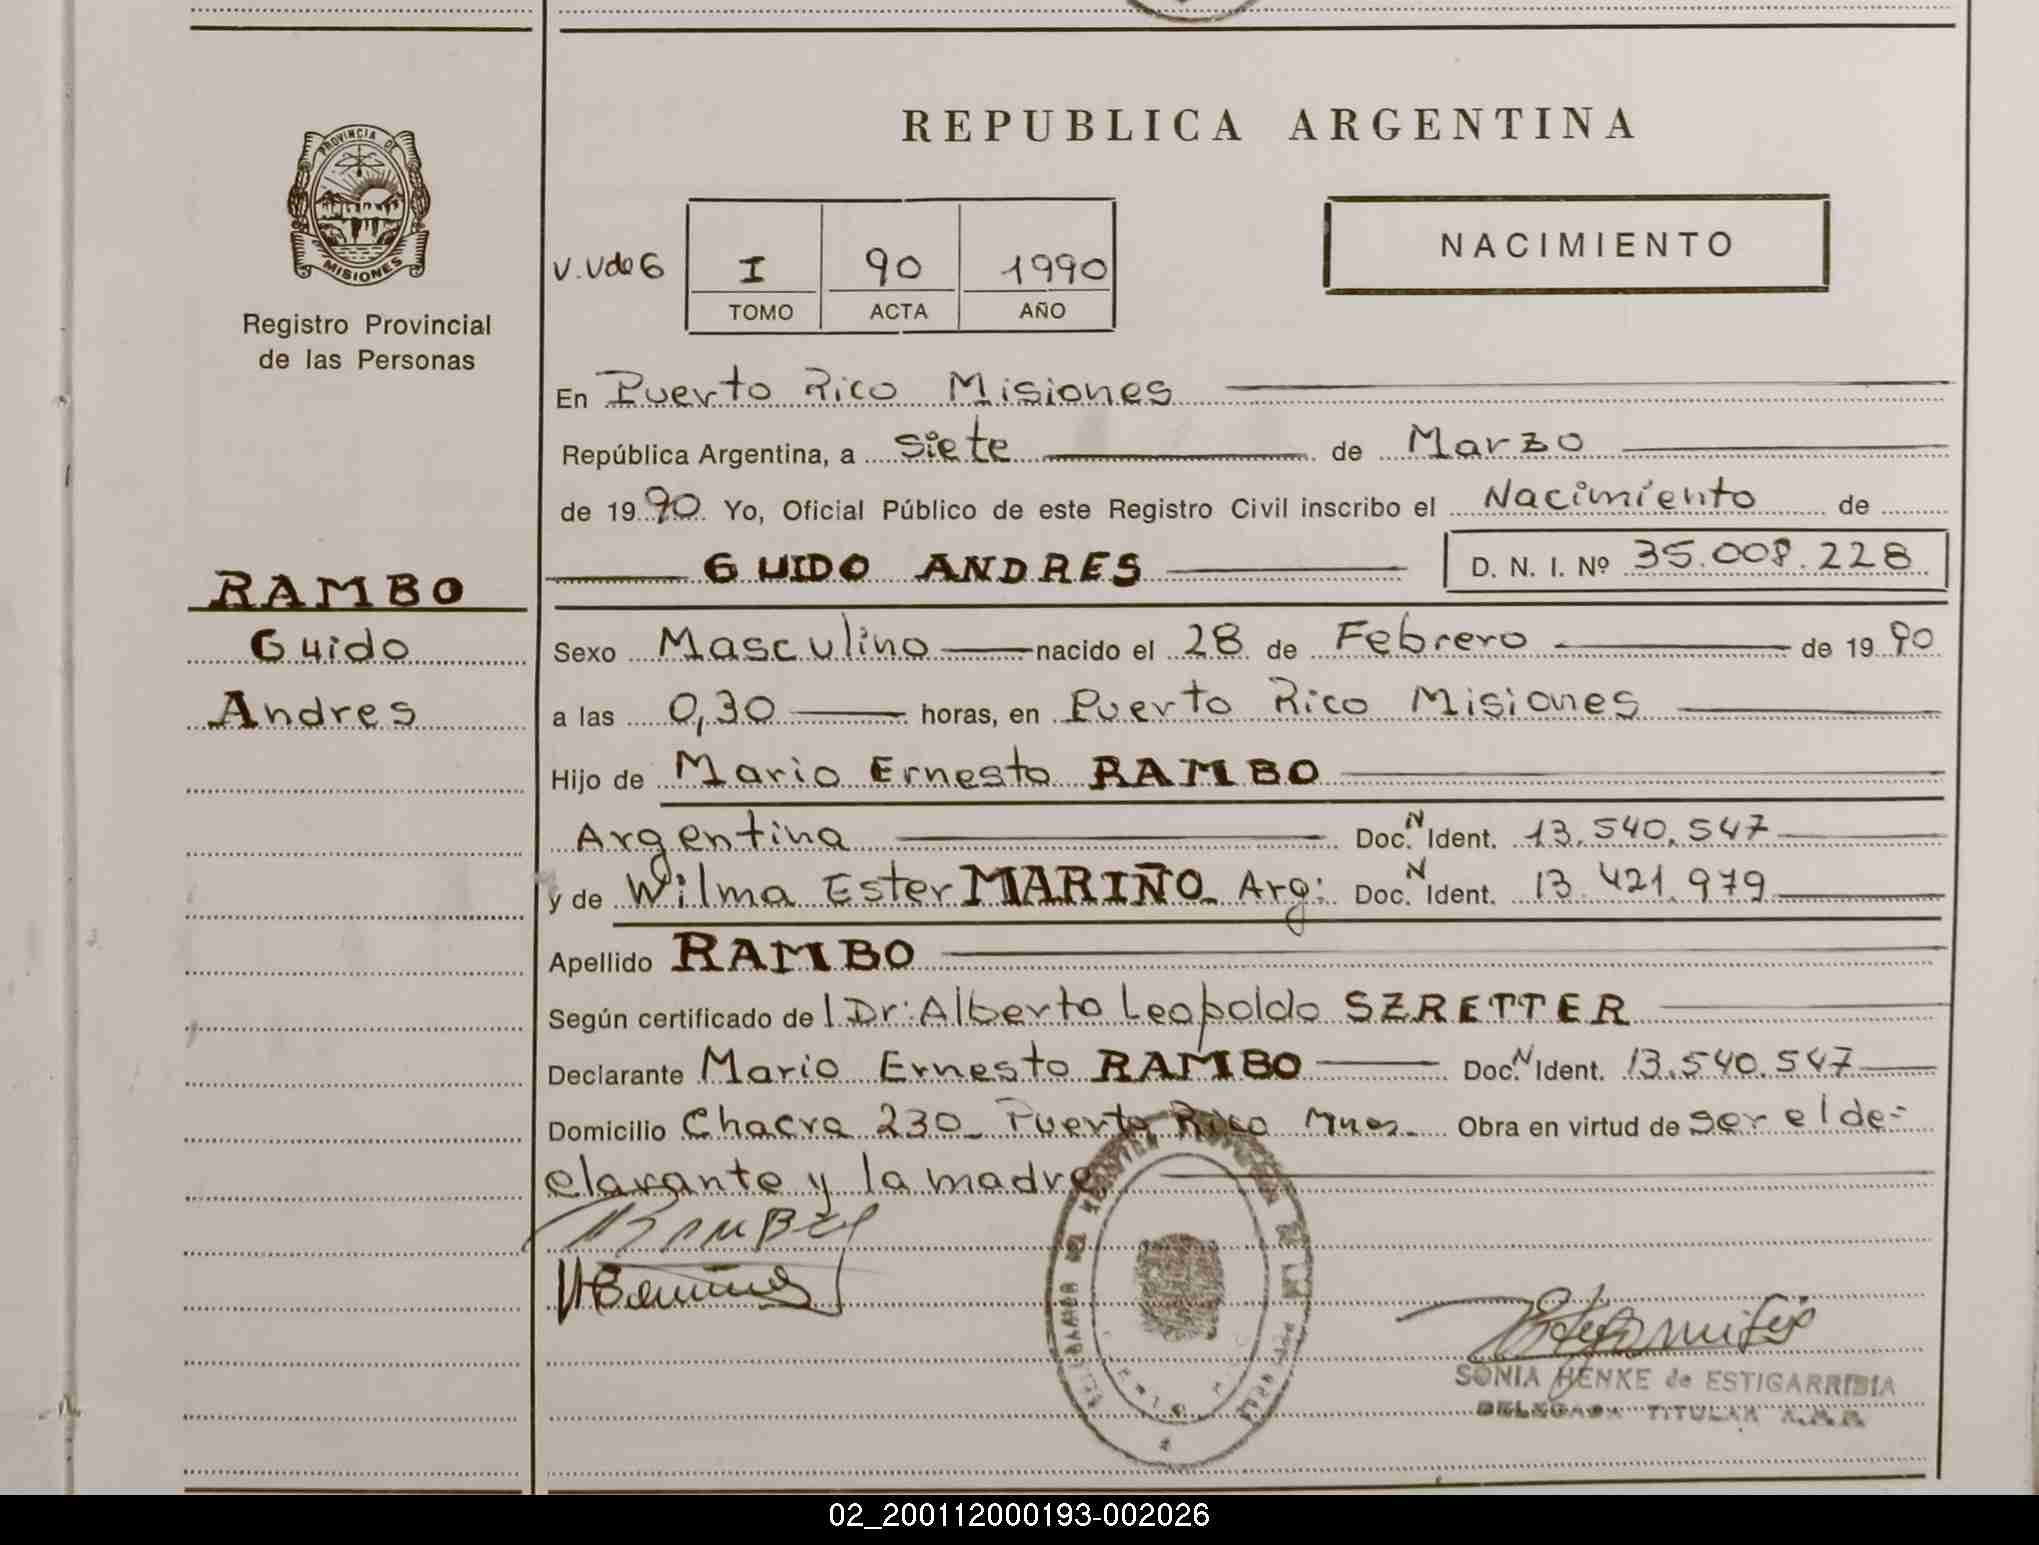 PROVINCIA DE
MISIONES
Registro Provincial
de las Personas
RAMBO
Guido
Andres
REPUBLICA ARGENTINA
V.Vde6 I 90 1990
TOMO ACTA AÑO
NACIMIENTO
En Puerto Rico Misiones
República Argentina, a siete de Marzo
de 1990 Yo, Oficial Público de este Registro Civil inscribo el Nacimiento de
GUIDO ANDRES D. N. I. Nº 35.008.228
Sexo Masculino nacido el 28 de Febrero de 1990
a las 0,30 horas, en Puerto Rico Misiones
Hijo de Mario Ernesto RAMBO
Argentina Doc. N Ident. 13.540.547
y de Wilma Ester MARIÑO Arg: Doc. N Ident. 13.421.979
Apellido RAMBO
Según certificado de l Dr: Alberto Leopoldo SZRETTER
Declarante Mario Ernesto RAMBO Doc. N Ident. 13.540.547
Domicilio Chacra 230_ Puerto Rico Mnes. Obra en virtud de ser el de=
clarante y la madre
SONIA HENKE de ESTIGARRIBIA
DELEGADA TITULAR
02_200112000193-002026